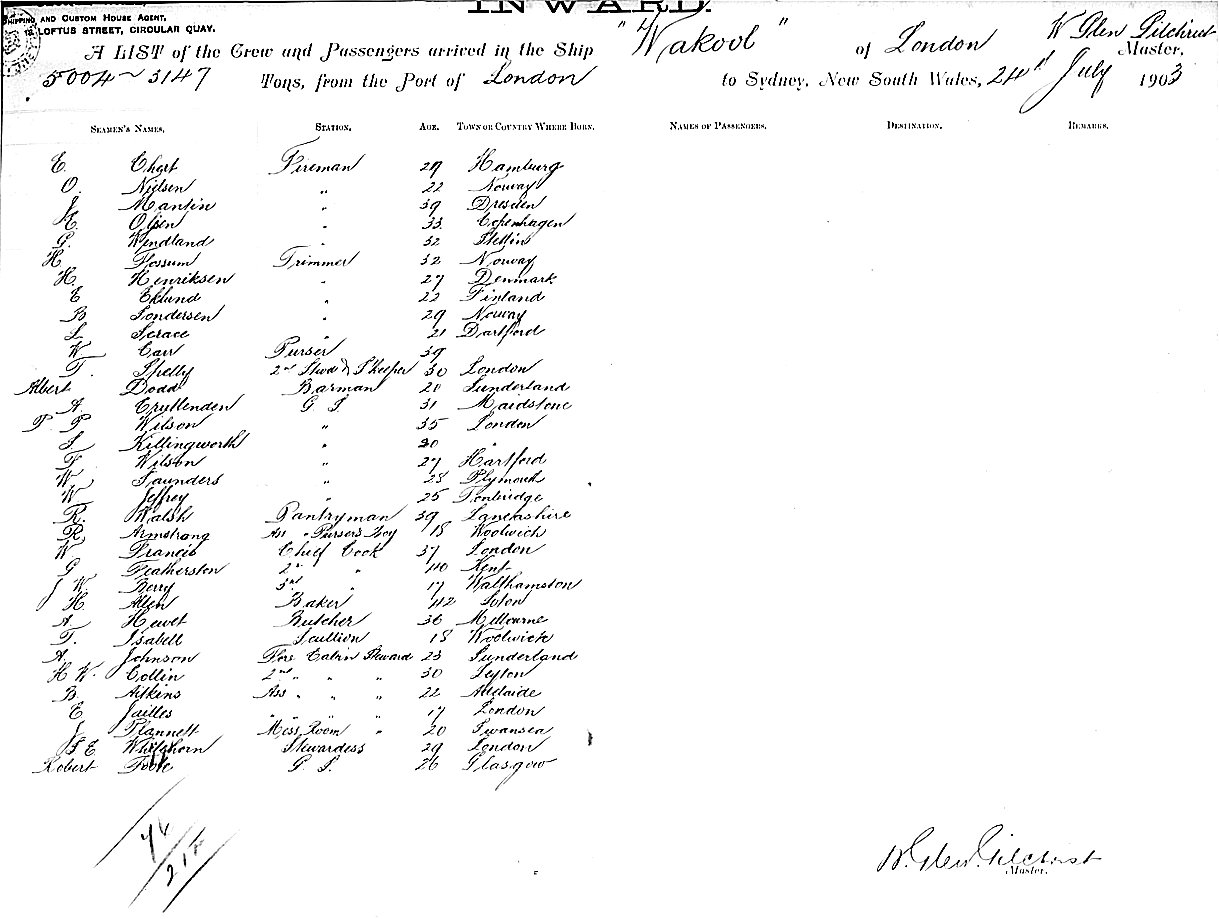 INWARD.
SHIPPING AND CUSTOM HOUSE AGENT,
LOFTUS STREET, CIRCULAR QUAY.
A LIST of the Crew and Passengers arrived in the Ship "Wakool" of London W Glen Gilchrist Master,
5004 ~ 3147 Tons, from the Port of London to Sydney, New South Wales, 24th July 1903
SEAMEN'S NAMES. STATION. AGE. TOWN OR COUNTRY WHERE BORN. NAMES OF PASSENGERS. DESTINATION. REMARKS.
E. Chart Fireman 29 Hamburg
O. Nielsen " 22 Norway
J. Mantin " 39 Dresden
K. Olsen " 33 Copenhagen
G. Windland " 32 Stettin
H Flossum Trimmer 32 Norway
H. Henriksen " 27 Denmark
E Eklund " 22 Finland
B Sondersen " 29 Norway
L Scrace " 21 Dartford
W Carr Purser 39
T. Spelly 2nd Stwd & S Keeper 30 London
Albert Dodd Barman 20 Sunderland
A. Cruttenden G. S. 31 Maidstone
P. P Wilson " 35 London
S Killingworth " 20 "
F Wilson " 27 Hartford
W Saunders " 28 Plymouth
W Jeffrey " 25 Tonbridge
R. Walsh Pantryman 39 Lancashire
R. Armstrong Ass " Pursers Boy 18 Woolwich
W Francis Chief Cook 37 London
G Featherston 2nd " 40 Kent
J W Berry 3rd " 17 Walthamston
H Allen Baker 42 Soton
A. Hewet Butcher 36 Melbourne
T. Isabell Scullion 18 Woolwich
A. Johnson Fore Cabin Steward 23 Sunderland
H W. Collin 2nd " " " 30 Leyton
B. Aitkins Ass " " " 22 Adelaide
E Jailles " " " " 17 London
J Flannett Mess Room " 20 Swansea
F E Whitehorn Stewardess 29 London
Robert Poole G. S. 26 Glasgow
W. Glen Gilchrist
Master.